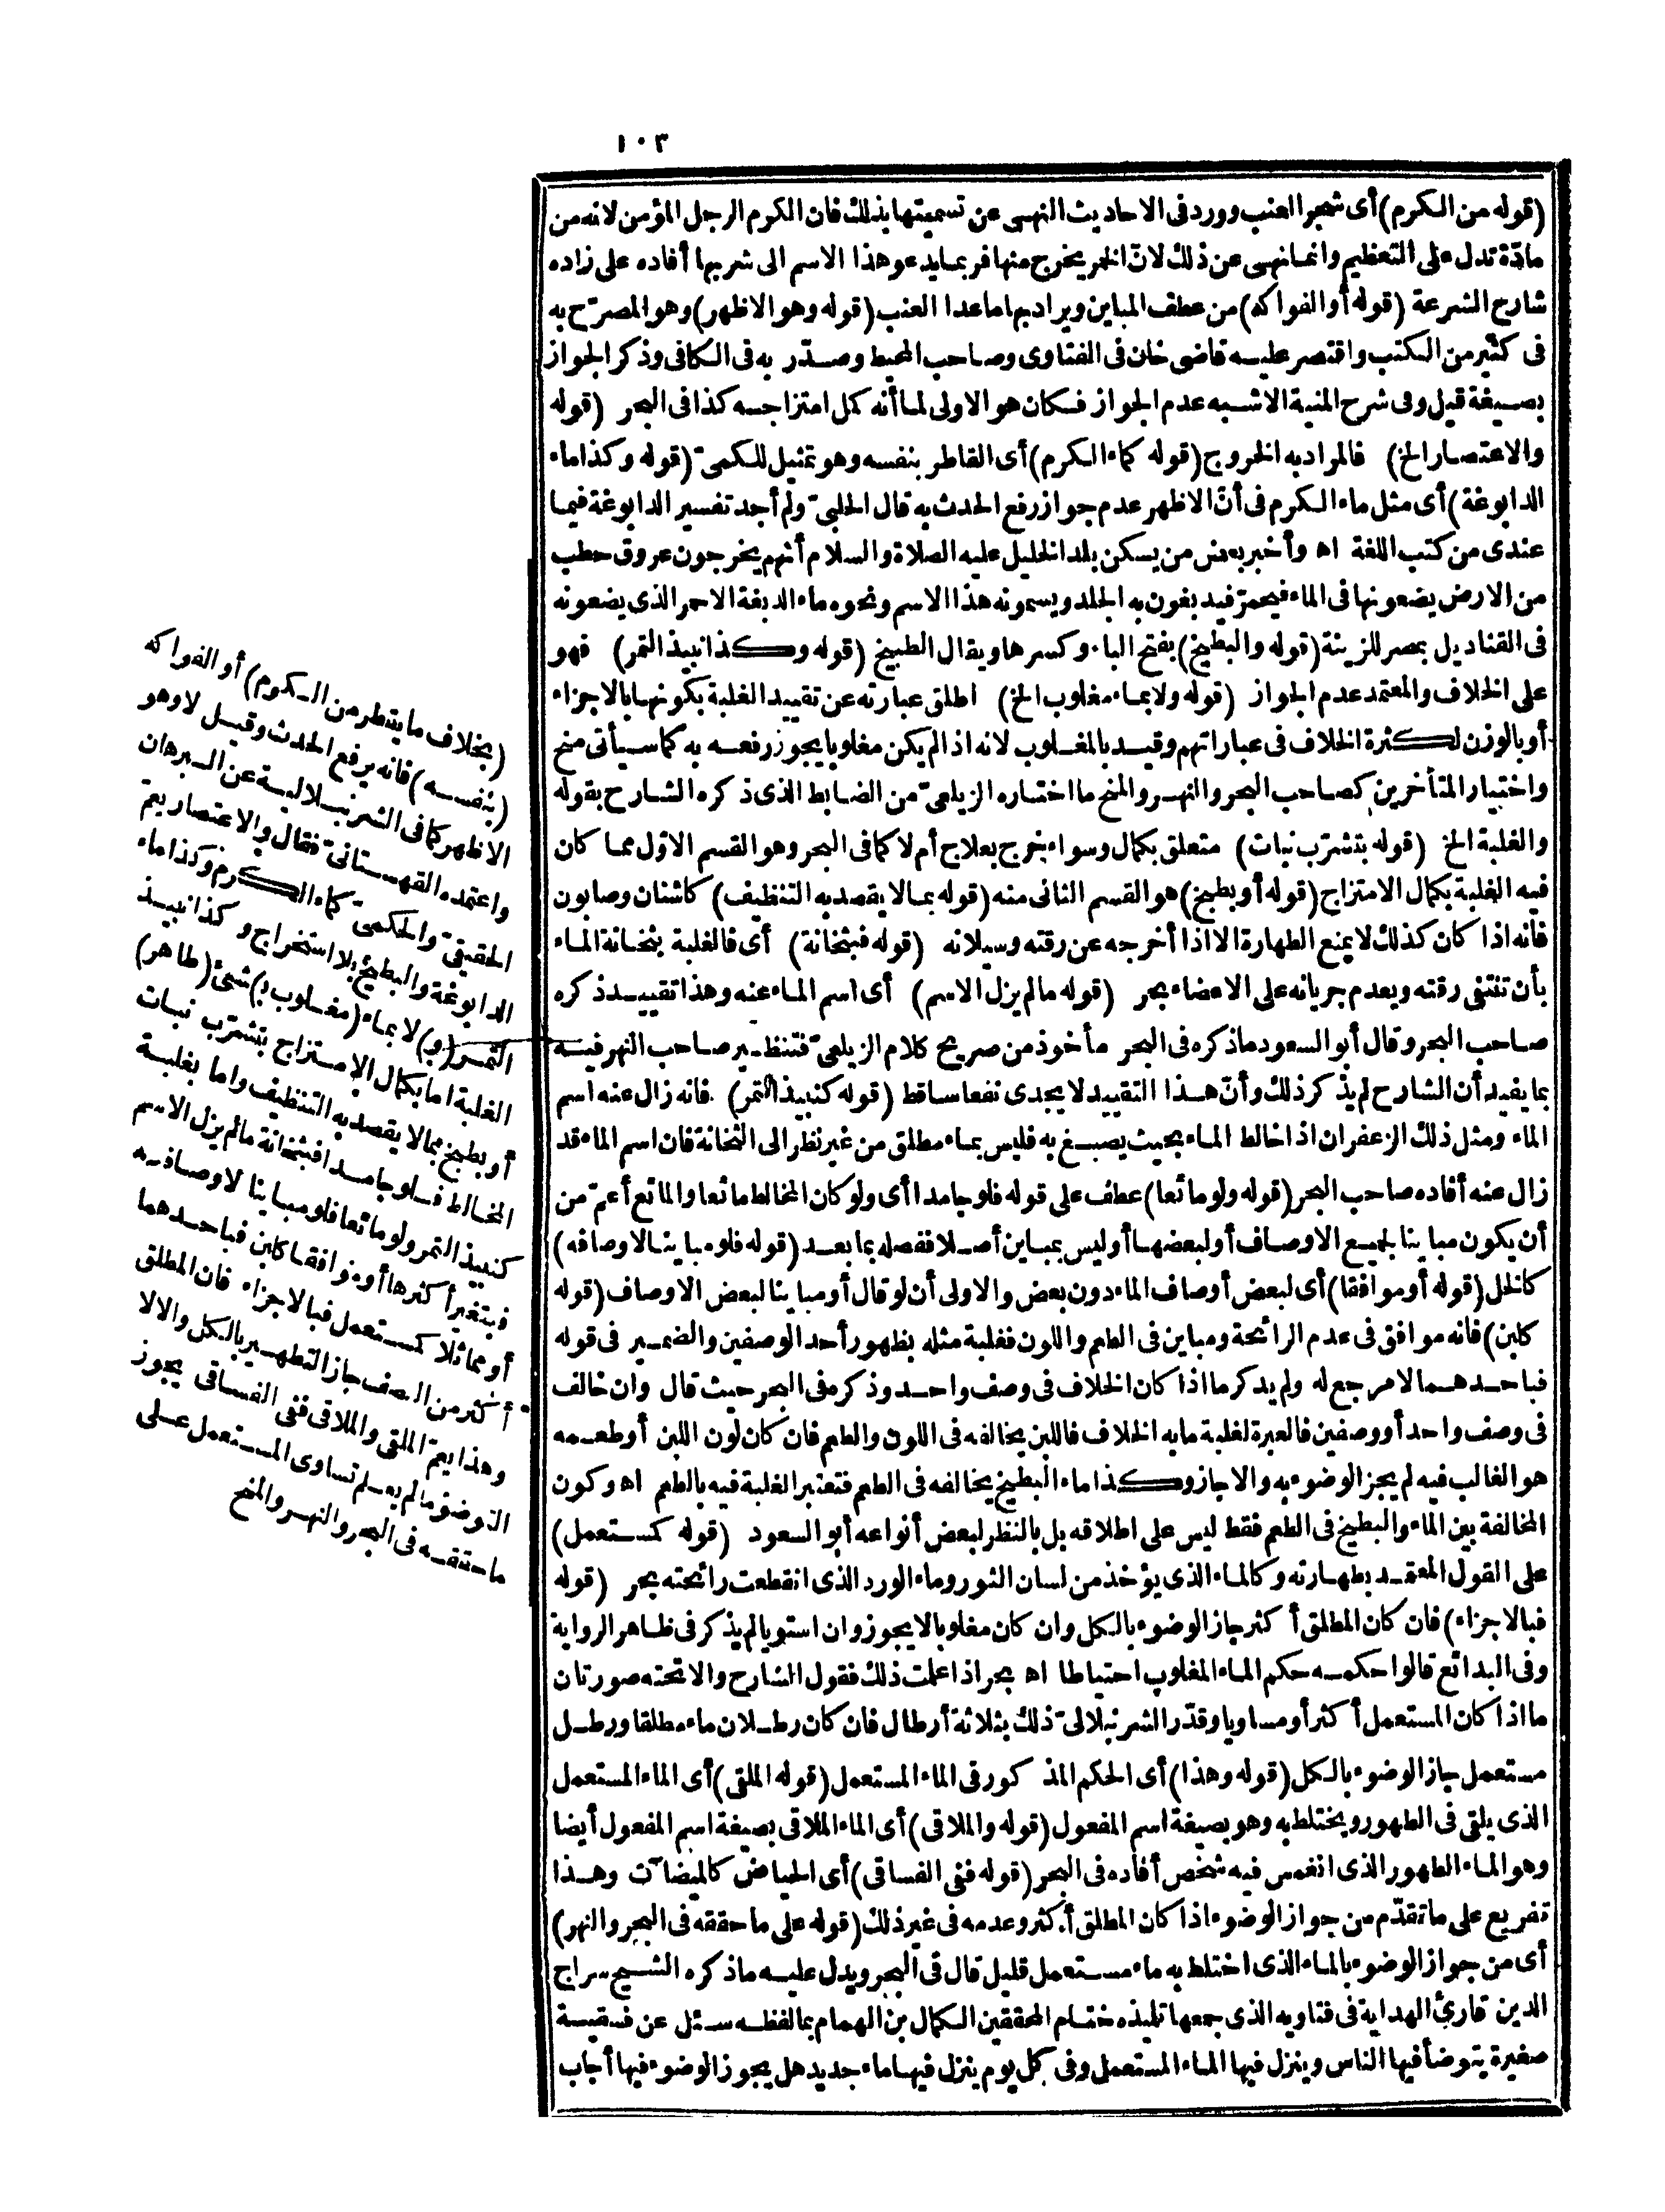 ١٠٣
(قوله من الكرم) أى شجر العنب وورد فى الاحاديث النهى عن تسميتها بذلك فان الكرم الرجل المؤمن لانه من
مادّة تدل على التعظيم وانما نهى عن ذلك لانّ الخمر يخرج منها فربما يدعو هذا الاسم الى شربها أفاده على زاده
شارح الشرعة (قوله أو الفواكه) من عطف المباين ويراد بها ما عدا العنب (قوله وهو الاظهر) وهو المصرّح به
فى كثير من الكتب واقتصر عليه قاضى خان فى الفتاوى وصاحب المحيط وصدّر به فى الكافى وذكر الجواز
بصيغة قيل وفى شرح المنية الاشبه عدم الجواز فكان هو الاولى لما أنه كمل امتزاجه كذا فى البحر (قوله
والاعتصار الخ) فالمراد به الخروج (قوله كماء الكرم) أى القاطر بنفسه وهو تمثيل للكمىّ (قوله وكذا ماء
الدابوغة) أى مثل ماء الكرم فى أنّ الاظهر عدم جواز رفع الحدث به قال الحلبىّ ولم أجد تفسير الدابوغة فيما
عندى من كتب اللغة اه وأخبر بعض من يسكن بلد الخليل عليه الصلاة والسلام أنهم يخرجون عروق حطب
من الارض يضعونها فى الماء فيحمرّ فيدبغون به الجلد ويسمونه هذا الاسم ونحوه ماء الدبغة الاحمر الذى يضعونه
فى القناديل بمصر للزينة (قوله والبطيخ) بفتح الباء وكسرها ويقال الطبيخ (قوله وكذا نبيذ التمر) فهو
على الخلاف والمعتمد عدم الجواز (قوله ولا بماء مغلوب الخ) اطلق عبارته عن تقييد الغلبة بكونها بالاجزاء
أو بالوزن لكثرة الخلاف فى عباراتهم وقيد بالمغلوب لانه اذا لم يكن مغلوبا يجوز رفعه به كما سيأتى منح
واختيار المتأخرين كصاحب البحر والنهر والمنح ما اختاره الزيلعىّ من الضابط الذى ذكره الشارح بقوله
والغلبة الخ (قوله بتشرّب نبات) متعلق بكمال وسواء خرج بعلاج أم لا كما فى البحر وهو القسم الاوّل مما كان
فيه الغلبة بكمال الامتزاج (قوله أو بطبخ) هو القسم الثانى منه (قوله بما لا يقصد به التنظيف) كاشنان وصابون
فأنه اذا كان كذلك لا يمنع الطهارة الا اذا أخرجه عن رقته وسيلانه (قوله فبثخانة) أى فالغلبة بثخانة الماء
بأن تنتفى رقته ويعدم جريانه على الاعضاء بحر (قوله ما لم يزل الاسم) أى اسم الماء عنه وهذا تقييد ذكره
صاحب البحر وقال أبو السعود ما ذكره فى البحر مأخوذ من صريح كلام الزيلعىّ فتنظير صاحب النهر فيه
بما يفيد أن الشارح لم يذكر ذلك وأنّ هذا التقييد لا يجدى نفعا ساقط (قوله كنبيذ التمر) فانه زال عنه اسم
الماء ومثل ذلك الزعفران اذا خالط الماء بحيث يصبغ به فليس بماء مطلق من غير نظر الى الثخانة فان اسم الماء قد
زال عنه أفاده صاحب البحر (قوله ولو مائعا) عطف على قوله فلو جامدا أى ولو كان المخالط مائعا والمائع أعمّ من
أن يكون مباينا لجميع الاوصاف أو لبعضها أو ليس بمباين أصلا ففصله بما بعد (قوله فلو مباينا لاوصافه)
كالخل (قوله أو موافقا) أى لبعض أوصاف الماء دون بعض والاولى أن لو قال أو مباينا لبعض الاوصاف (قوله
كلبن) فانه موافق فى عدم الرائحة ومباين فى الطعم واللون فغلبة مثله بظهور أحد الوصفين والضمير فى قوله
فباحدهما لا مرجع له ولم يذكر ما اذا كان الخلاف فى وصف واحد وذكره فى البحر حيث قال وان خالف
فى وصف واحد أو وصفين فالعبرة لغلبة ما به الخلاف فاللبن يخالفه فى اللون والطعم فان كان لون اللبن أو طعمه
هو الغالب فيه لم يجز الوضوء به والا جاز وكذا ماء البطيخ يخالفه فى الطعم فتعتبر الغلبة فيه بالطعم اه وكون
المخالفة بين الماء والبطيخ فى الطعم فقط ليس على اطلاقه بل بالنظر لبعض أنواعه أبو السعود (قوله كمستعمل)
على القول المعتمد بطهارته وكالماء الذى يؤخذ من لسان الثور وماء الورد الذى انقطعت رائحته بحر (قوله
فبالاجزاء) فان كان المطلق أكثر جاز الوضوء بالكل وان كان مغلوبا لا يجوز وان استويا لم يذكر فى ظاهر الرواية
وفى البدائع قالوا حكمه حكم الماء المغلوب احتياطا اه بحر اذا علمت ذلك فقول الشارح والا تحته صورتان
ما اذا كان المستعمل أكثر أو مساويا وقدّر الشرنبلالىّ ذلك بثلاثة أرطال فان كان رطلان ماء مطلقا ورطل
مستعمل جاز الوضوء بالكل (قوله وهذا) أى الحكم المذكور فى الماء المستعمل (قوله الملقى) أى الماء المستعمل
الذى يلقى فى الطهور ويختلط به وهو بصيغة اسم المفعول (قوله والملاقى) أى الماء الملاقى بصيغة اسم المفعول أيضا
وهو الماء الطهور الذى انغمس فيه شخص أفاده فى البحر (قوله ففى الفساقى) أى الحياض كالميضاآت وهذا
تفريع على ما تقدّم من جواز الوضوء اذا كان المطلق أكثر وعدمه فى غير ذلك (قوله على ما حققه فى البحر والنهر)
أى من جواز الوضوء بالماء الذى اختلط به ماء مستعمل قليل قال فى البحر ويدل عليه ما ذكره الشيخ سراج
الدين قارئ الهداية فى فتاويه الذى جمعها تلميذه ختام المحققين الكمال بن الهمام بما لفظه سئل عن فسقية
صغيرة يتوضأ فيها الناس وينزل فيها الماء المستعمل وفى كل يوم ينزل فيها ماء جديد هل يجوز الوضوء فيها أجاب
(بخلاف ما يقطر من الكرم) أو الفواكه
(بنفسه) فانه يرفع الحدث وقيل لا وهو
الاظهر كما فى الشرنبلالية عن البرهان
واعتمده القهستانىّ فقال والاعتصار يعمّ
الحقيقىّ والحكمىّ كماء الكرم وكذا ماء
الدابوغة والبطيخ بلا استخراج وكذا نبيذ
التمر (و) لا بماء (مغلوب ب) شئ (طاهر)
الغلبة اما بكمال الامتزاج بتشرّب نبات
أو بطبخ بما لا يقصد به التنظيف واما بغلبة
المخالط فلو جامدا فبثخانة ما لم يزل الاسم
كنبيذ التمر ولو مائعا فلو مباينا لاوصافه
فبتغير أكثرها أو موافقا كلبن فباحدهما
أو مماثلا كمستعمل فبالاجزاء فان المطلق
أكثر من النصف جاز التطهير بالكل والا لا
وهذا يعمّ الملقى والملاقى ففى الفساقى يجوز
التوضؤ ما لم يعلم تساوى المستعمل على
ما حققه فى البحر والنهر والمنح